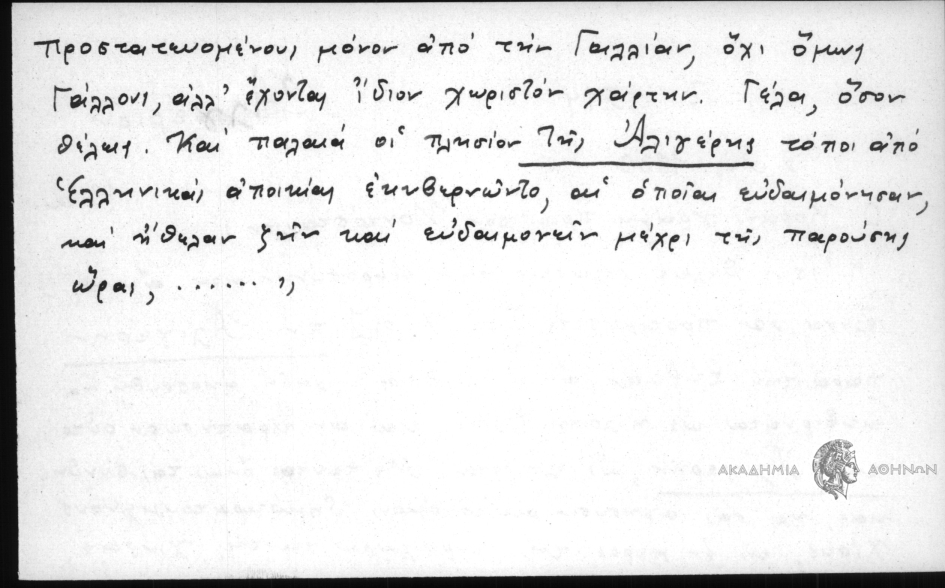 προστατευομένους μόνον ἀπό τήν Γαλλίαν, ὄχι ὅμως
Γάλλους, ἀλλ' ἔχοντας ἴδιον χωριστόν χάρτην. Γέλα, ὅσον
θέλεις. Καί παλαιά οἱ πλησίον τῆς Ἀλιγέρης τόποι ἀπό
ἑλληνικάς ἀποικίας ἐκυβερνῶντο, αἱ ὁποῖαι εὐδαιμόνησαν,
καί ἤθελαν ζῆν καί εὐδαιμονεῖν μέχρι τῆς παρούσης
ὥρας, ....... ,,
ΑΚΑΔΗΜΙΑ ΑΘΗΝΩΝ